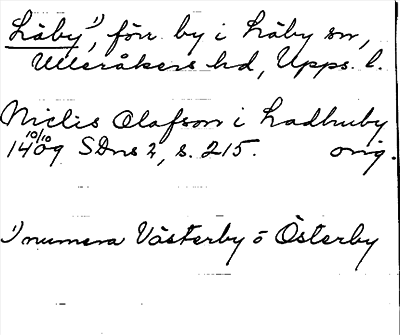 Läby¹⁾, förr by i Läby sn,
Ulleråkers hd, Upps. l.
Niclis Olafson i Ladhuby
10/10
1409 SDns 2, s. 215. orig.
¹⁾ numera Västerby o Österby